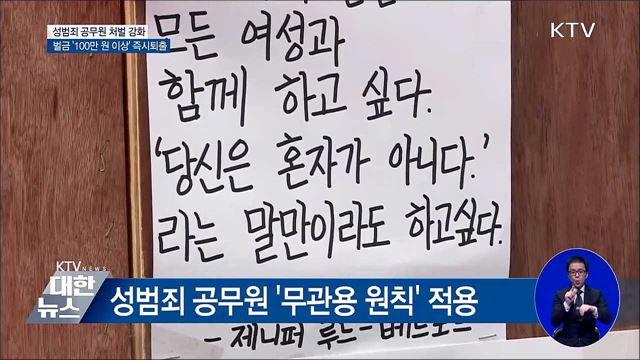 성범죄 공무원 처벌 강화
벌금 '100만 원 이상' 즉시퇴출
KTV
모든 여성과
함께 하고 싶다.
'당신은 혼자가 아니다.'
라는 말만이라도 하고싶다.
KTV NEWS
대한
뉴스
성범죄 공무원 '무관용 원칙' 적용
- 제니퍼